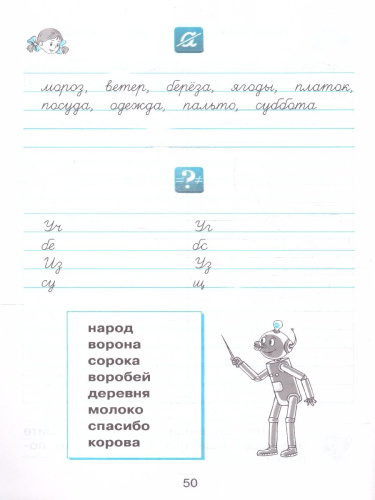 а
мороз, ветер, берёза, ягоды, платок,
посуда, одежда, пальто, суббота
=?≠
Уч Уг
бе бс
Из Уз
су щ
народ
ворона
сорока
воробей
деревня
молоко
спасибо
корова
50